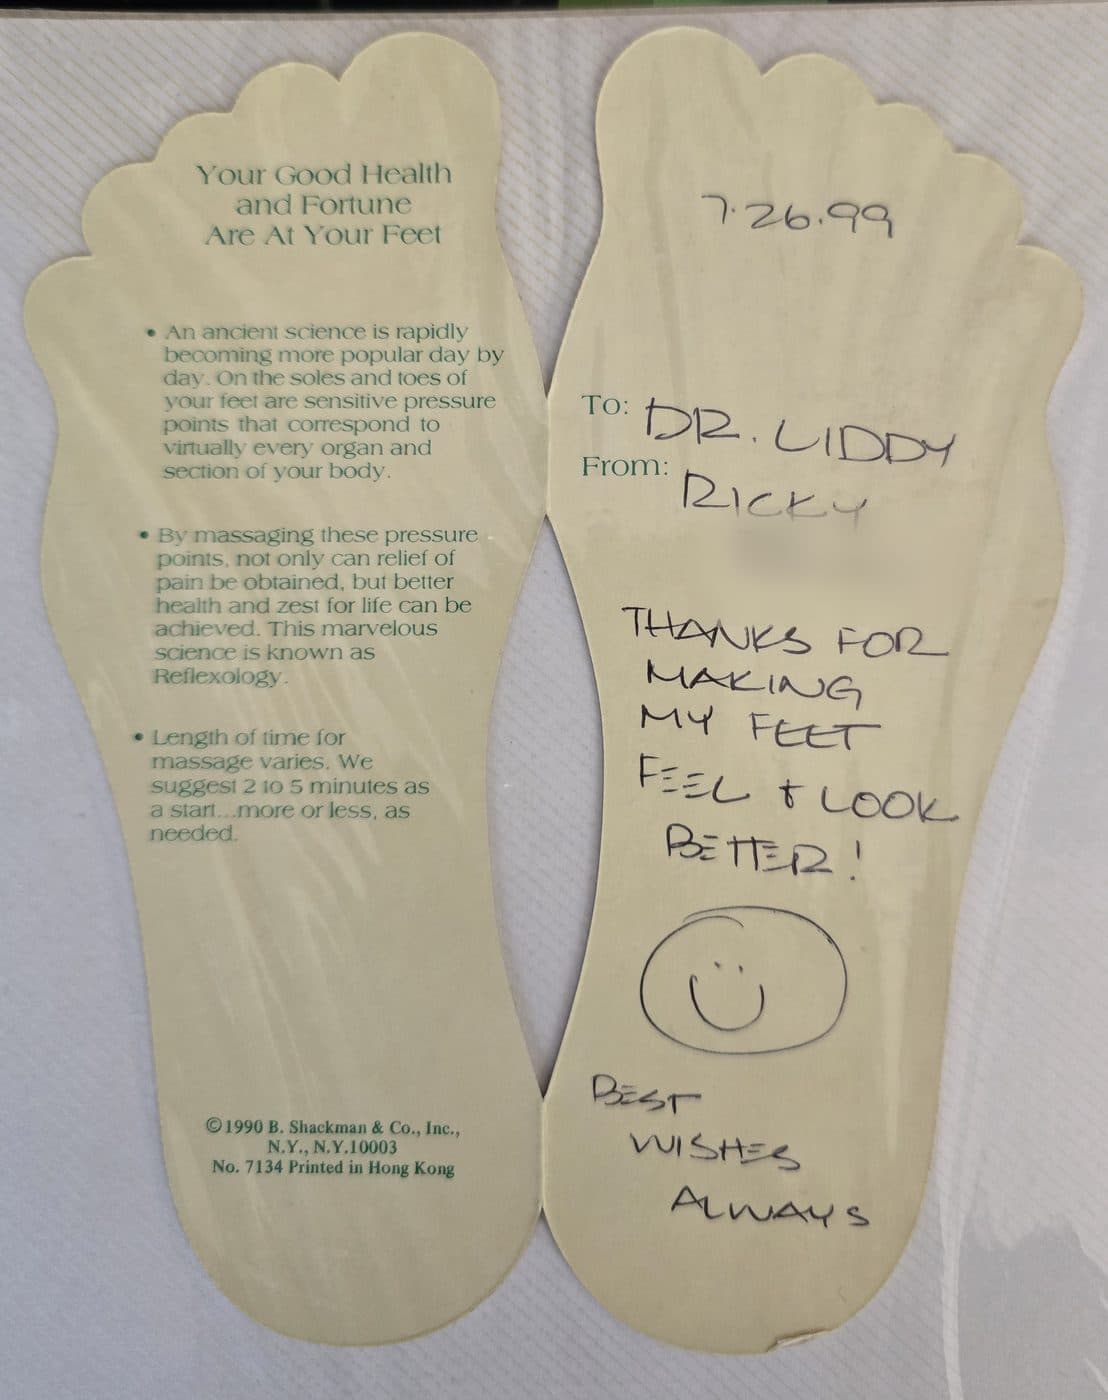 Your Good Health
and Fortune
Are At Your Feet
• An ancient science is rapidly
becoming more popular day by
day. On the soles and toes of
your feet are sensitive pressure
points that correspond to
virtually every organ and
section of your body.
• By massaging these pressure
points, not only can relief of
pain be obtained, but better
health and zest for life can be
achieved. This marvelous
science is known as
Reflexology.
• Length of time for
massage varies. We
suggest 2 to 5 minutes as
a start...more or less, as
needed.
©1990 B. Shackman & Co., Inc.,
N.Y., N.Y.10003
No. 7134 Printed in Hong Kong
7.26.99
To: DR. LIDDY
From: RICKY
THANKS FOR
MAKING
MY FEET
FEEL & LOOK
BETTER!
BEST
WISHES
ALWAYS